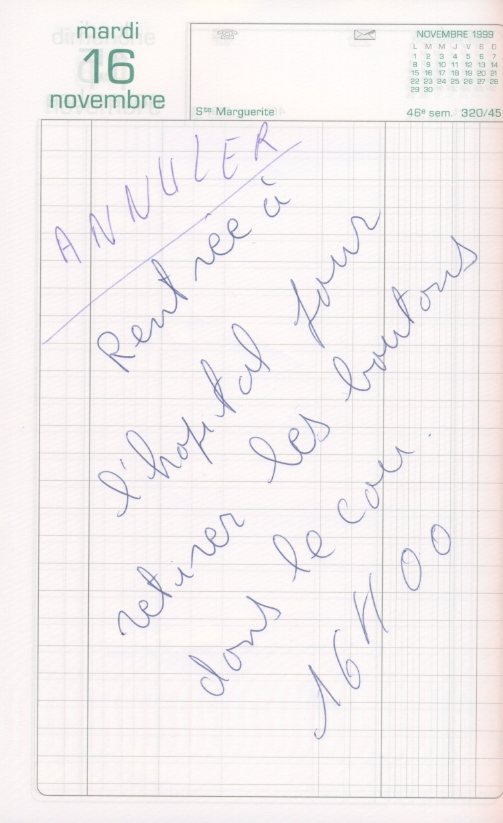 mardi
16
novembre
NOVEMBRE 1999
L M M J V S D
1 2 3 4 5 6 7
8 9 10 11 12 13 14
15 16 17 18 19 20 21
22 23 24 25 26 27 28
29 30
Ste Marguerite
46e sem. 320/45
ANNULER
Rentrée à
l'hopital pour
retirer les boutons
dans le cou.
16H00